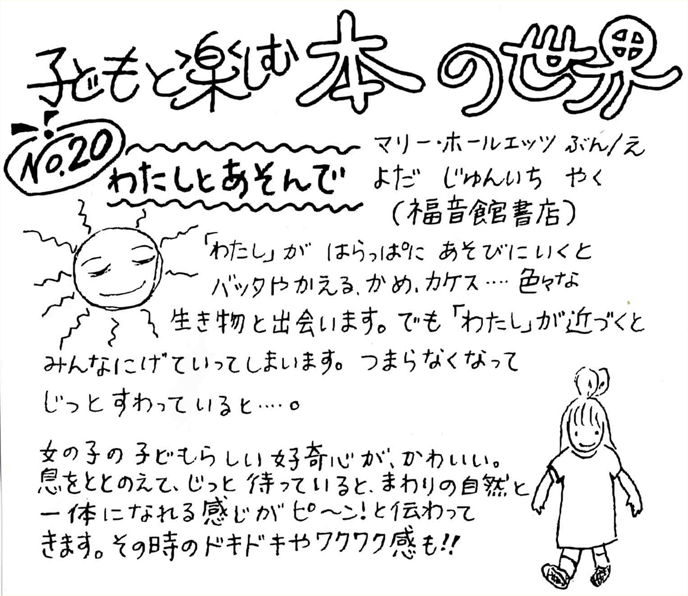 子どもと楽しむ本の世界
No.20
わたしとあそんで
マリー・ホールエッツ ぶん/え
よだ じゅんいち やく
(福音館書店)
「わたし」が はらっぱに あそびにいくと
バッタやかえる、かめ、カケス‥‥色々な
生き物と出会います。でも「わたし」が近づくと
みんなにげていってしまいます。つまらなくなって
じっとすわっていると‥‥。
女の子の子どもらしい好奇心が、かわいい。
息をととのえて、じっと待っていると、まわりの自然と
一体になれる感じがピ〜ン!と伝わって
きます。その時のドキドキやワクワク感も!!